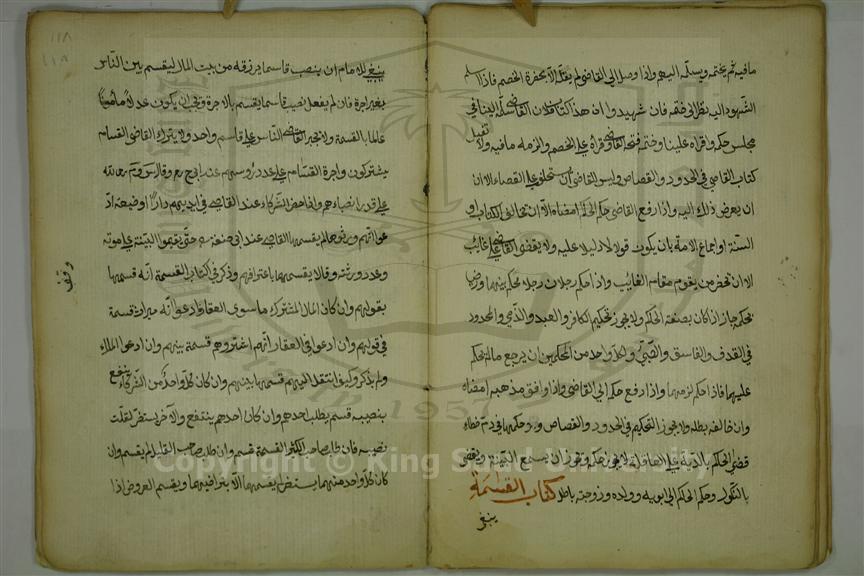 ما فيه ثم يختمه ويسلمه اليهم واذا وصل الى القاضي لم يقبله الا بحضرة الخصم فاذا سلم
الشهود اليه نظر الى ختمه فان شهدوا ان هذا كتاب فلان القاضي سلمه الينا في
مجلس حكمه وقراه علينا وختمه فتحه القاضي وقراه على الخصم والزمه ما فيه ولا تقبل
كتاب القاضي في الحدود والقصاص وليس للقاضي ان يستخلف على القضاء الا ان
ان يفوض ذلك اليه واذا رفع القاضي حكم الحاكم امضاه الا ان تخالف الكتاب او
السنة او اجماع الامة بان يكون قولا لا دليلا عليه ولا يقضي القاضي على غائب
الا ان تحضر من يقوم مقام الغائب واذا حكم رجلان رجلا لحكم بينهما ورضيا
بحكمه جاز اذا كان بصفة الحاكم ولا يجوز تحكيم الكافر والعبد والذمي والمحدود
في القذف والفاسق والصبي ولكل واحد من المحكمين ان يرجع ما لم تحكم
عليهما فاذا حكم لزمهما واذا رفع حكمه الى القاضي واذا وافق مذهبه امضاه
وان خالفه بطله ولا يجوز التحكيم في الحدود والقصاص وحكمهما في دم خطاء
قضى الحاكم بالدية على العاقلة لا يجوز حكمه وتجوز ان يسمع البينة ويقضي
بالنكول وحكم الحاكم الى ابويه وولده وزوجته باطل كتاب القسمة
ينبغي
١١٨
١١٨
ينبغي للامام ان ينصب قاسما يرزقه من بيت المال ليقسم بين الناس
بغير اجرة فان لم يفعل نصب قاسما يقسم بالاجرة وتجب ان يكون عدلا مأمونا
عالما بالقسمة ولا يجبر القاضي الناس على قاسم واحد ولا يترك القاضي القسام
يشتركون واجرة القسام على عدد رؤسهم عند ابي ح رح وقالا س وم رحمه الله
على قدر انصباءهم واذا حضر الشركاء عند القاضي في ايديهم دارا او ضيعة اذ
عوا انهم ورثوها لم يقسمها القاضي عند ابي حنيفة رح حتى يقيموا البينة على موته
وعدد ورثته وقالا يقسمها باعترافهم وذكر في كتاب القسمة انه قسمها
بقولهم وان كان المال المشترك ما سوى العقار وادعوا انه ميراث قسمة
في قولهم وان ادعوا في العقار انهم اشتروهم قسمة بينهم وان ادعوا الملك
ولم يذكر وكيف انتقل اليهم قسمها بينهم وان كان كل واحد من الشركاء ينتفع
بنصيبه قسم بطلب احدهم وان كان احدهم ينتفع والآخر يستضر لقلت
نصيبه فان طلب صاحب الكثير القسمة قسم وان طلب صاحب القليل لم يقسم وان
كان كل واحد منهما يستضر لم يقسمها الا بتراضيهما ويقسم العروض اذا
وقف
Copyright © King Saud University